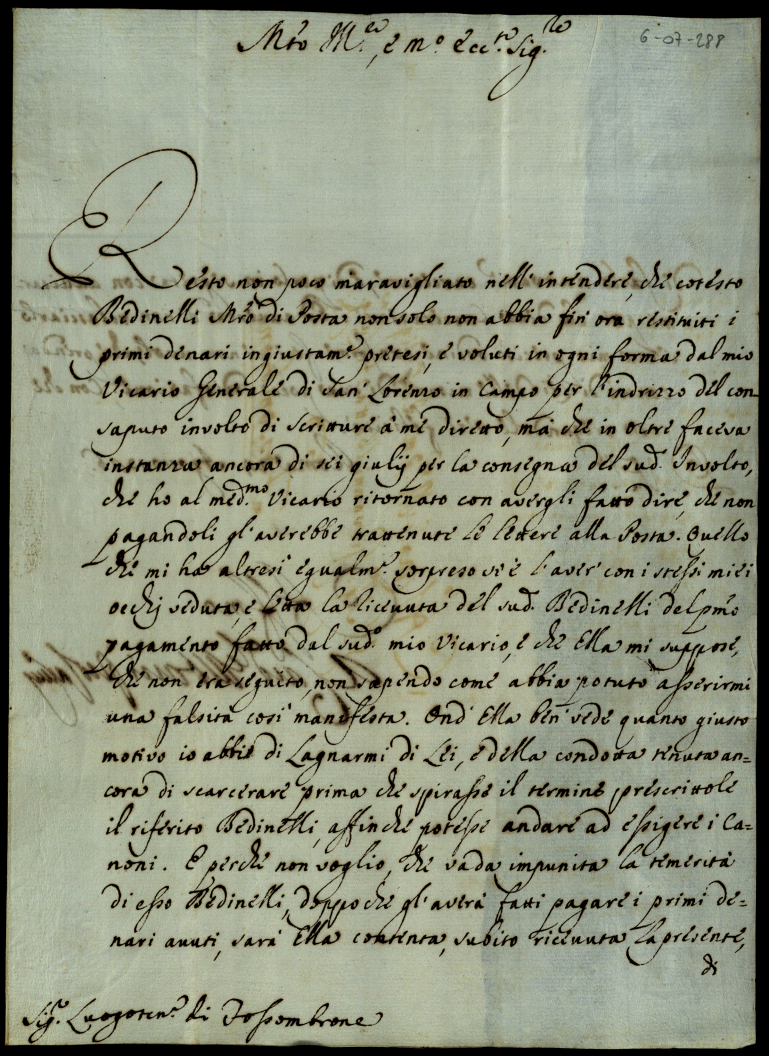 6-07-288
Mto Mco, e mo Eccte Sigre
Resto non poco maravigliato nell'intendere, che cotesto
Bedinelli Mro di Posta non solo non abbia fin ora restituiti i
primi denari ingiustamte pretesi, e voluti in ogni forma dal mio
Vicario Generale di San Lorenzo in Campo per l'indrizzo del con
saputo involto di scritture à me diretto, mà che in oltre faceva
instanza ancora di sei giulij per la consegna del sudo Involto,
che ho al medmo Vicario ritornato con avergli fatto dire, che non
pagandoli gl'averebbe trattenute le lettere alla Posta. Quello
che mi ha altresi egualmte sorpreso si è l'aver con i stessi miei
occhj veduta, e letta la ricevuta del sudo Bedinelli del pmo
pagamento fatto dal sudo mio Vicario, e che Ella mi suppose,
che non era seguito, non sapendo come abbia potuto asserirmi
una falsità così manifesta. Ond'Ella ben vede quanto giusto
motivo io abbia di lagnarmi di Lei, e della condotta tenuta an=
cora di scarcerare prima che spirasse il termine prescrittole
il riferito Bedinelli, affinche potesse andare ad essigere i Ca=
noni. E perche non voglio, che vada impunita la temerità
di esso Bedinelli, doppo che gl'averà fatti pagare i primi de=
nari avuti, sarà Ella contenta, subito ricevuta la presente,
di
Sigr Luogotente di Fossombrone